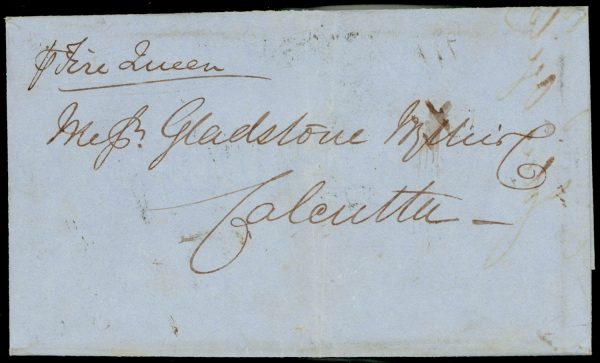 p Fire Queen
Messrs Gladstone Wyllie & Co
Calcutta